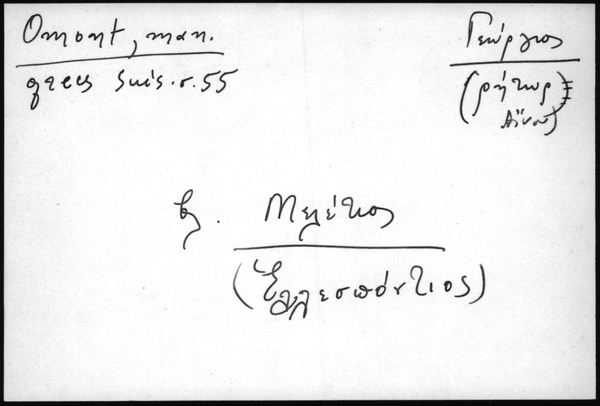 Omont, man.
grecs Suis. σ. 55
Γεώργιος
(ρήτωρ
Αἴνου)
βλ. Μελέτιος
(Ἑλλεσπόντιος)